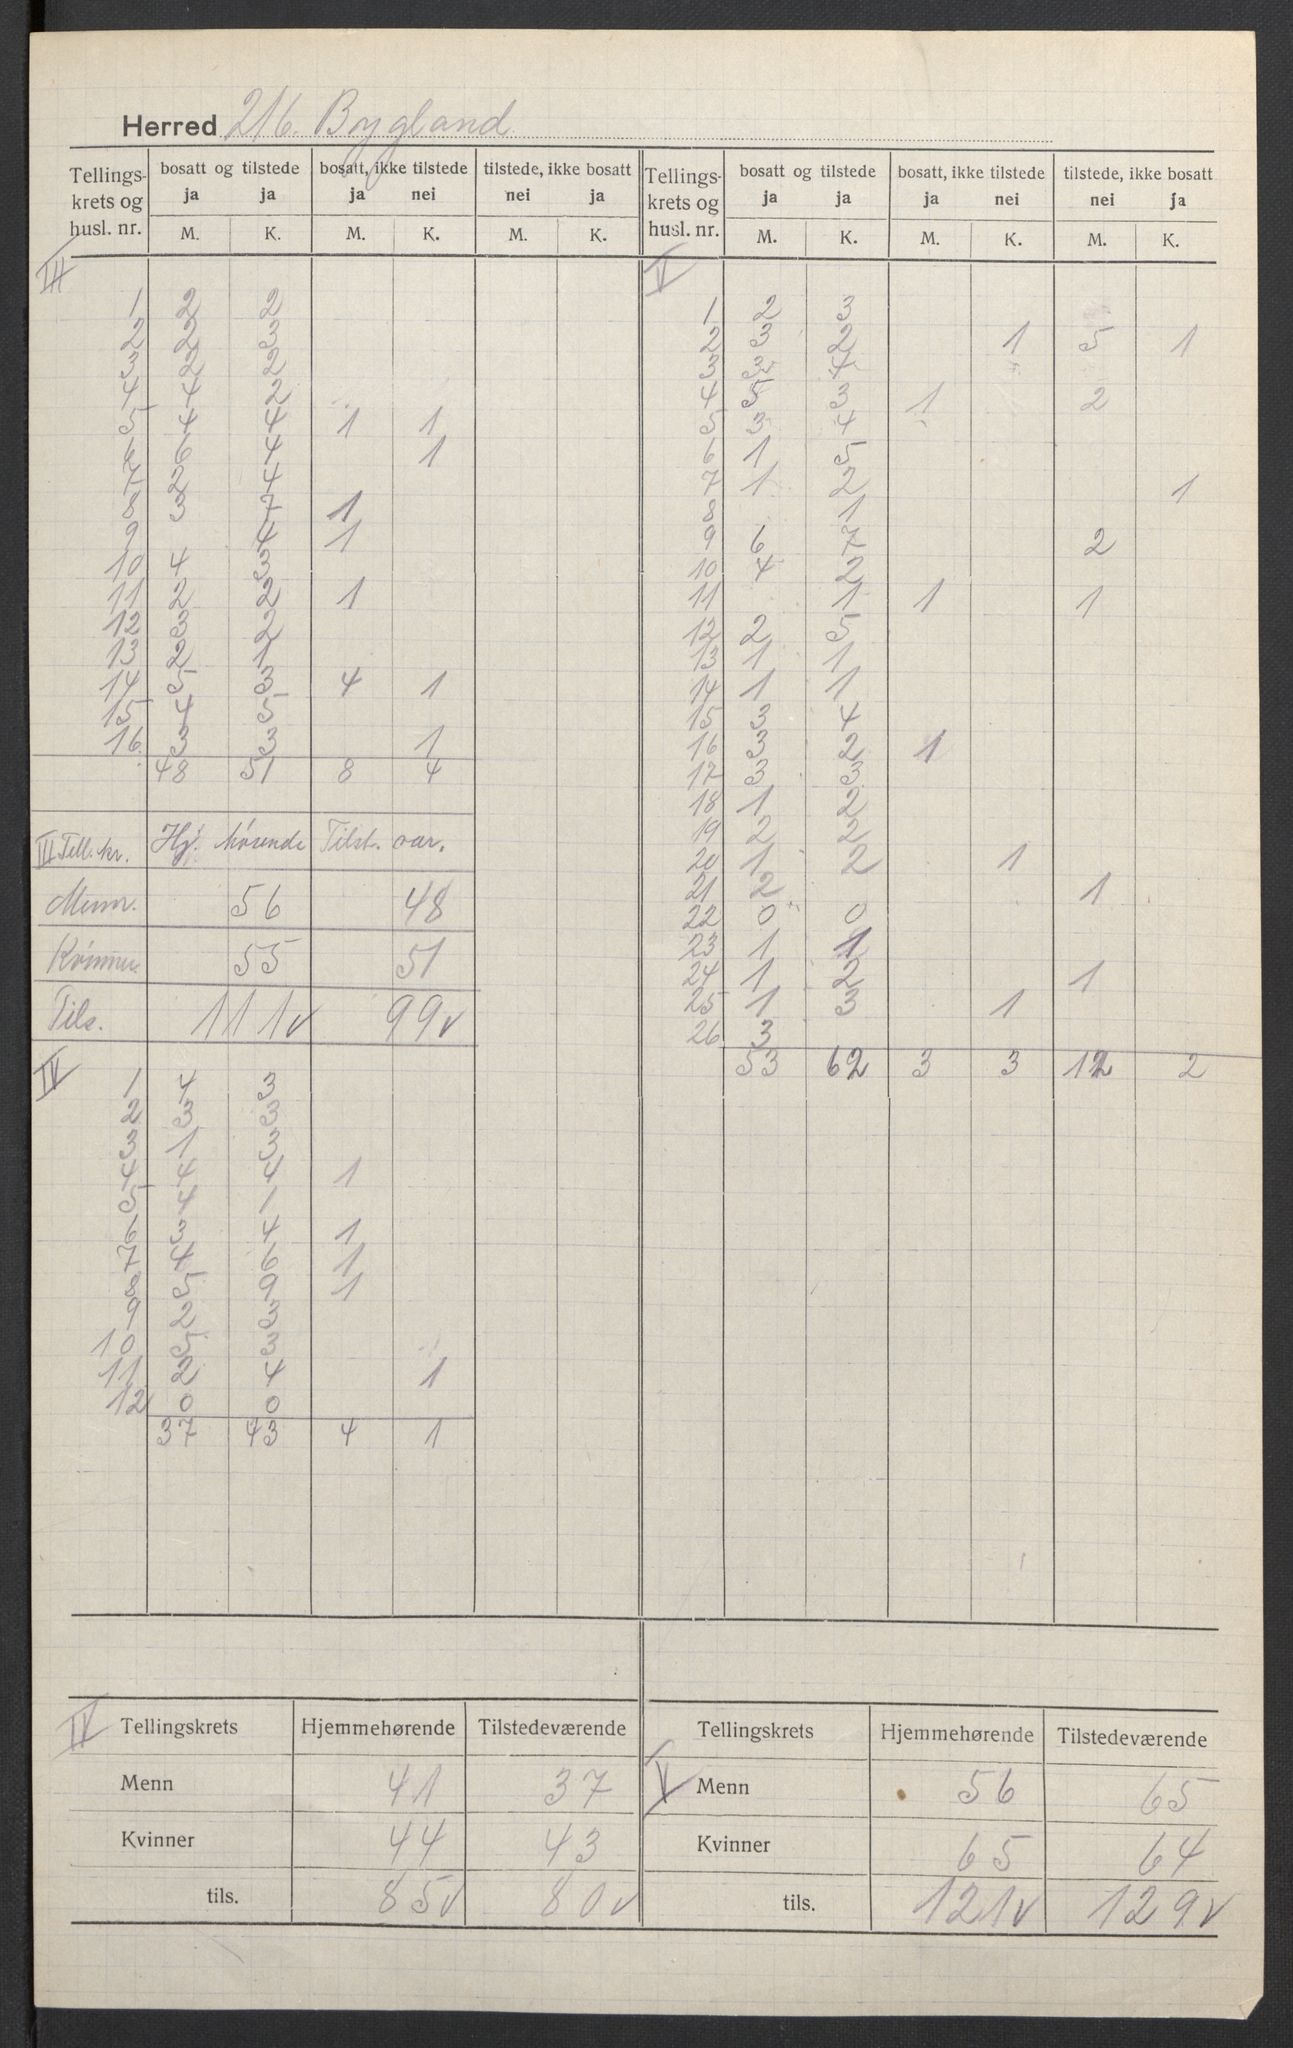 Herred 216. Bygland
Tellings- krets og husl. nr. | bosatt og tilstede ja ja | bosatt, ikke tilstede ja nei | tilstede, ikke bosatt nei ja
M. K. M. K. M. K.
III
1 2 2
2 2 3
3 2 2
4 4 2
5 4 4 1 1
6 6 4 1
7 2 4
8 3 7 1
9 4 1
10 4 3
11 2 2 1
12 3 2
13 2 1
14 5 3 4 1
15 4 5
16. 3 3 1
48 51 8 4
III Tell. kr. Hj. hørende Tilst. vær.
Menn. 56 48
Kvinner. 55 51
Tils. 111 v 99 v
IV
1 4 3
2 3 3
3 1 3
4 4 4 1
5 4 1
6 3 4 1
7 4 6 1
8 5 9 1
9 2 3
10 5 3
11 2 4 1
12 0 0
37 43 4 1
Tellings- krets og husl. nr. | bosatt og tilstede ja ja | bosatt, ikke tilstede ja nei | tilstede, ikke bosatt nei ja
M. K. M. K. M. K.
V
1 2 3
2 3 2 1 5 1
3 3 4
4 5 3 1 2
5 3 4
6 1 5
7 1 2 1
8 1
9 6 7 2
10 4 2
11 1 1 1
12 2 5
13 1 1
14 1 1
15 3 4
16 3 2 1
17 3 3
18 1 2
19 2 2
20 1 2 1
21 2 1
22 0 0
23 1 1
24 1 2 1
25 1 3 1
26 3
53 62 3 3 12 2
IV Tellingskrets Hjemmehørende Tilstedeværende
Menn 41 37
Kvinner 44 43
tils. 85 v 80 v
V Tellingskrets Hjemmehørende Tilstedeværende
Menn 56 65
Kvinner 65 64
tils. 121 v 129 v